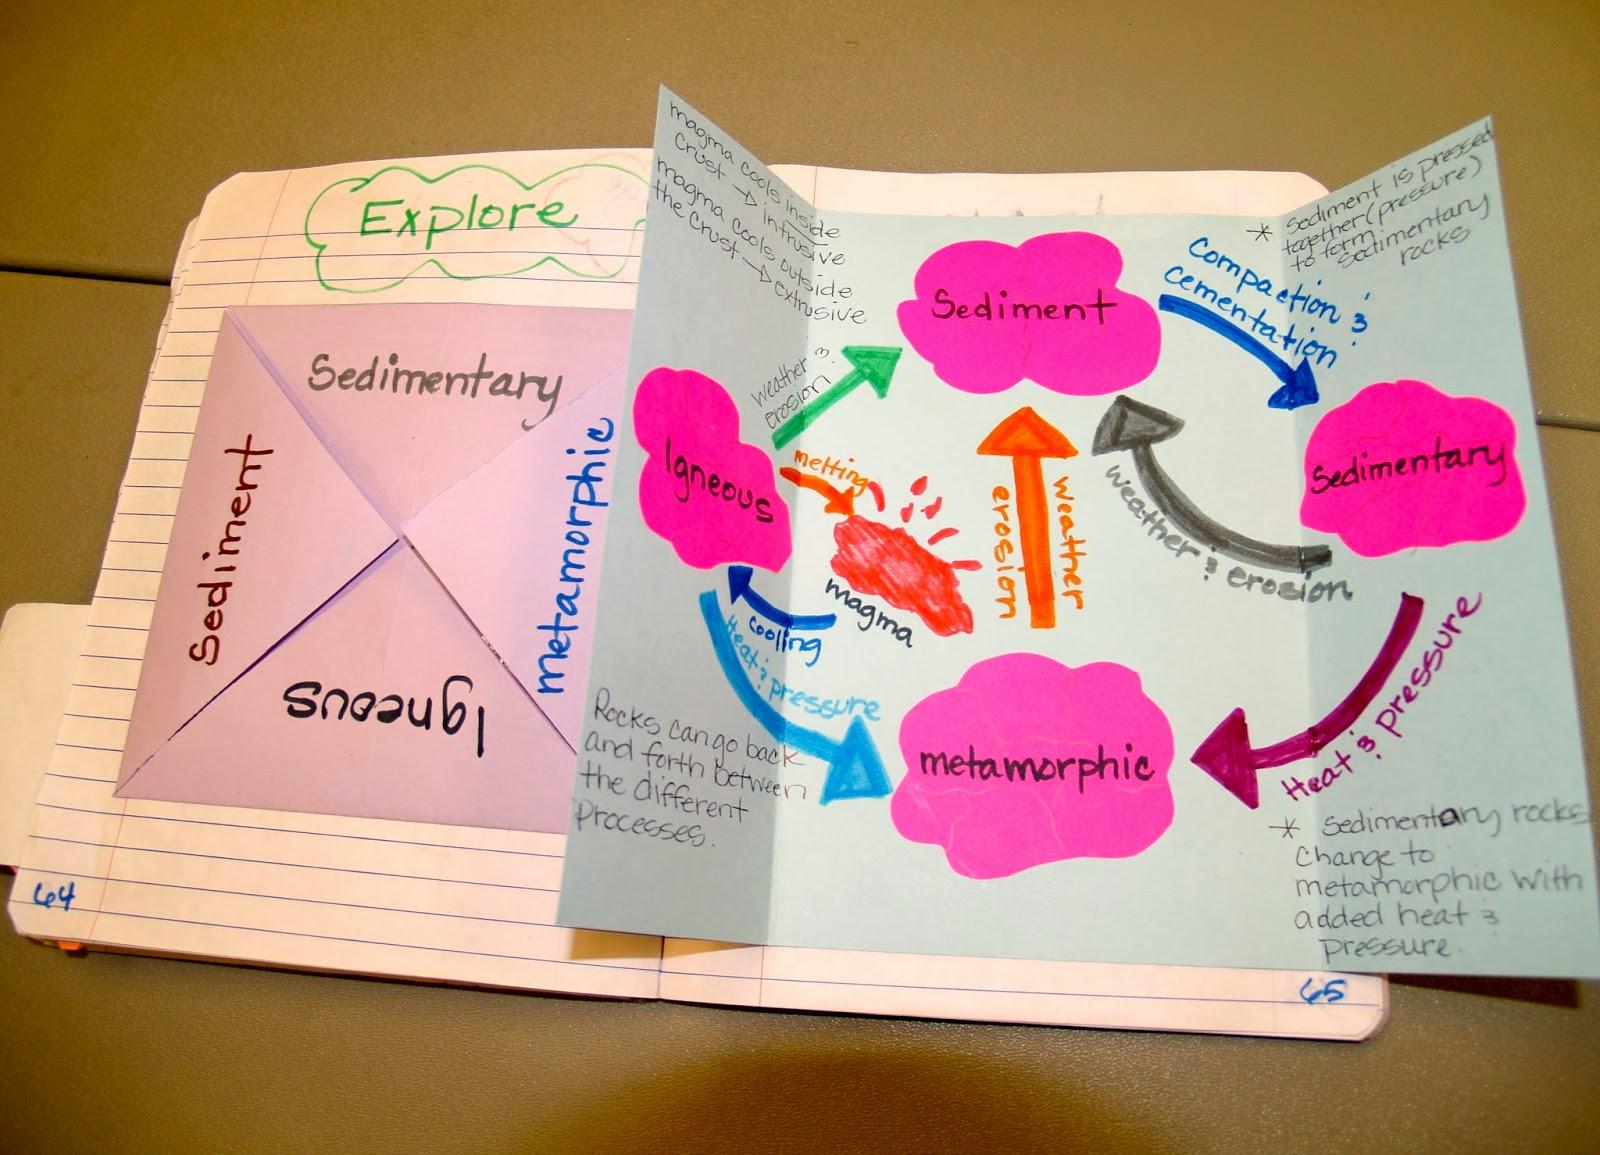 Explore
Sedimentary
Sediment
metamorphic
Igneous
64
magma cools inside
crust → intrusive
magma cools outside
the crust → extrusive
weather &
erosion
Sediment
Compaction &
cementation
* Sediment is pressed
together (pressure)
to form
Sedimentary
rocks
Igneous
melting
magma
cooling
Heat & pressure
weather
erosion
weather & erosion
Sedimentary
Heat & pressure
metamorphic
Rocks can go back
and forth between
the different
Processes.
* Sedimentary rocks
Change to
metamorphic with
added heat &
pressure.
65